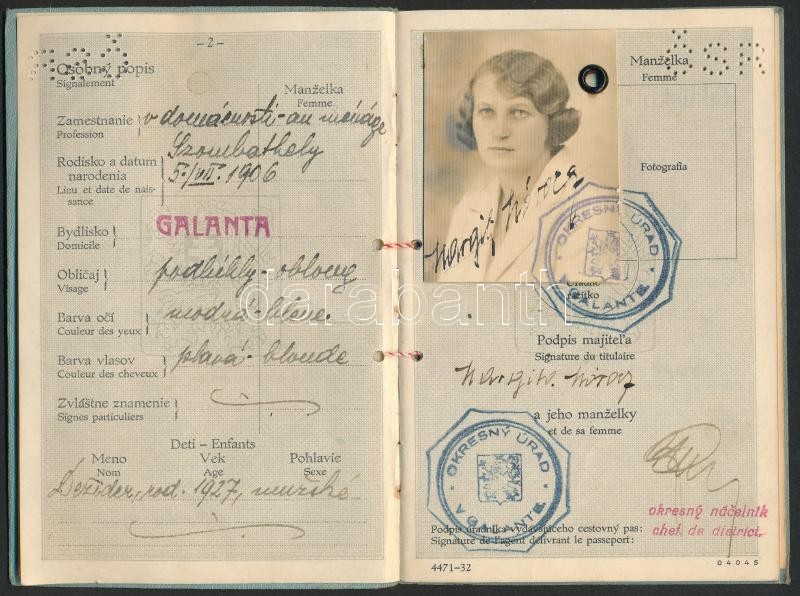 -2-
Osobný popis
Signalement
Manželka
Femme
Zamestnanie
Profession
v domácnosti - au ménage
Rodisko a datum
narodenia
Lieu et date de nais-
sance
Szombathely
5./VII. 1906
Bydlisko
Domicile
GALANTA
Obličaj
Visage
podlhlý - oblong
Barva očí
Couleur des yeux
modrá - bleue
Barva vlasov
Couleur des cheveux
plavá - blonde
Zvláštne znamenie
Signes particuliers
Deti – Enfants
Meno Vek Pohlavie
Nom Age Sexe
Dežider, rod. 1927, mužské
ČSR
Manželka
Femme
Fotografia
Margit
OKRESNÝ ÚRAD
V GALANTE
Podpis majiteľa
Signature du titulaire
a jeho manželky
et de sa femme
OKRESNÝ ÚRAD
V GALANTE
okresný náčelník
chef de district
Podpis úradníka vydávajúceho cestovný pas:
Signature de l'agent délivrant le passeport:
4471-32
04045
darabanth